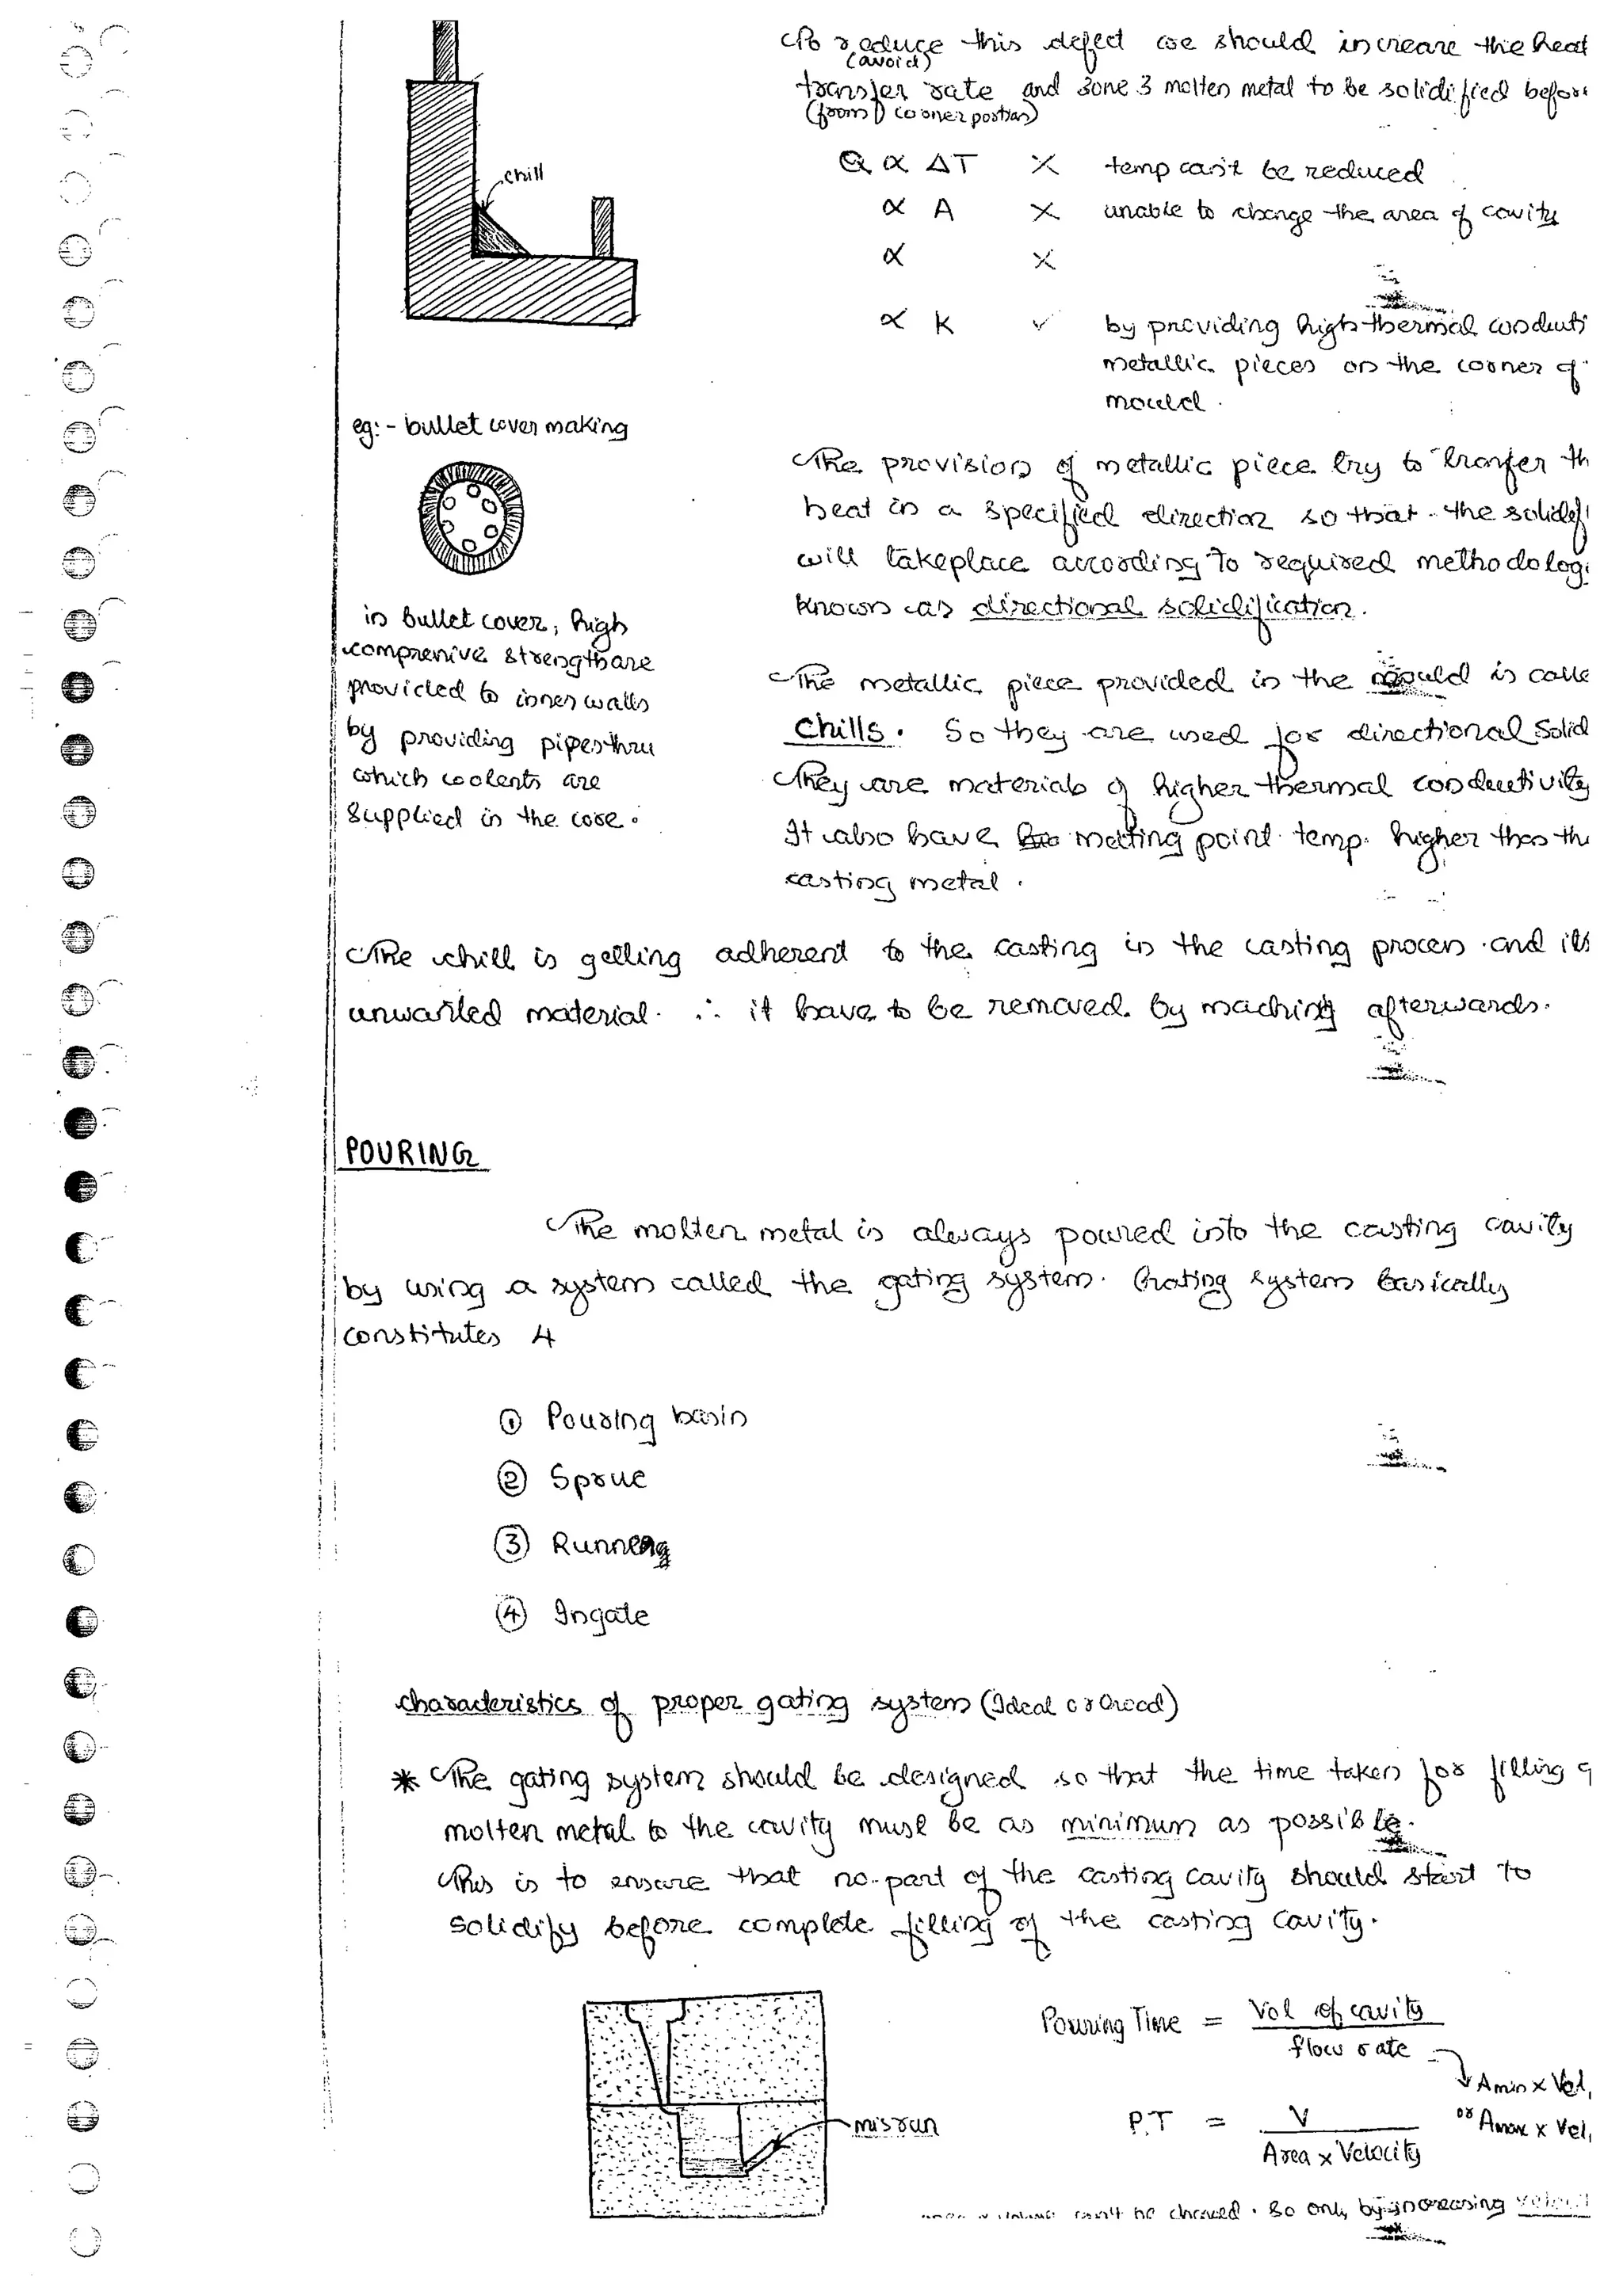 To reduce this defect we should increase the heat
(avoid)
transfer rate and zone 3 molten metal to be solidified before
(from) corner portion)
Q ∝ ΔT × temp can't be reduced
∝ A × unable to change the area of cavity
∝ ×
∝ K ✓ by providing high thermal conducti
metallic pieces on the corner of
mould.
chill
eg:- bullet cover making
in bullet cover, high
compressive strength are
provided to inner walls
by providing pipes thru
which coolents are
supplied in the core.
The provision of metallic piece try to tranfer th
heat in a specified direction so that the solidifi
will takeplace according to required methodologi
known as directional solidification.
The metallic piece provided in the mould is calle
chills. So they are used for directional solid
They are materials of higher thermal conductivity
It also have melting point temp. higher than the
casting metal.
The chill is getting adherent to the casting in the casting process and its
unwanted material. ∴ it have to be removed by maching afterwards.
POURING
The molten metal is always poured into the casting cavity
by using a system called the gating system. Gating system basically
constitutes 4
① Pouring basin
② Sprue
③ Running
④ Ingate
characteristics of proper gating system (Ideal or Good)
* The gating system should be designed so that the time taken for filling of
molten metal to the cavity must be as minimum as possible.
This is to ensure that no part of the casting cavity should start to
solidify before complete filling of the casting cavity.
Pouring Time = Vol of cavity
flow rate
↓ Amin x Vel,
or Amax x Vel,
P.T = V
Area x Velocity
misrun
can't be changed. So only by increasing